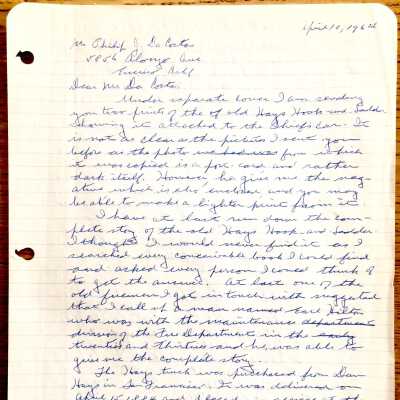 April 10, 1962
Mr Philip J. Da Costa
5856 Alonzo Ave
Encino Calif
Dear Mr Da Costa.
Under separate cover I am sending
you two prints of the of old Hays Hook and Ladder
showing it attached to the Chiefs car. It
is not as clear as the pictures I sent you
before as the photo from which
it was copied is a post-card and rather
dark itself. However he give me the neg-
ative which is also enclosed and you may
be able to make a lighter print from it.
I have at last run down the com-
plete story of the old Hays Hook and Ladder
I thought I would never find it as I
searched every conceivable book I could find
and asked every person I could think of
to get the answer. At last one of the
old firemen I got in touch with suggested
that I call up a man named Earl
who was with the maintenance department
division of the Fire Department in the early
twenties and thirties and he was able to
give me the complete story.
The Hays truck was purchased from Dan
Hays in San Francisco. It was delivered on
April 15, 1886 and placed in service at the